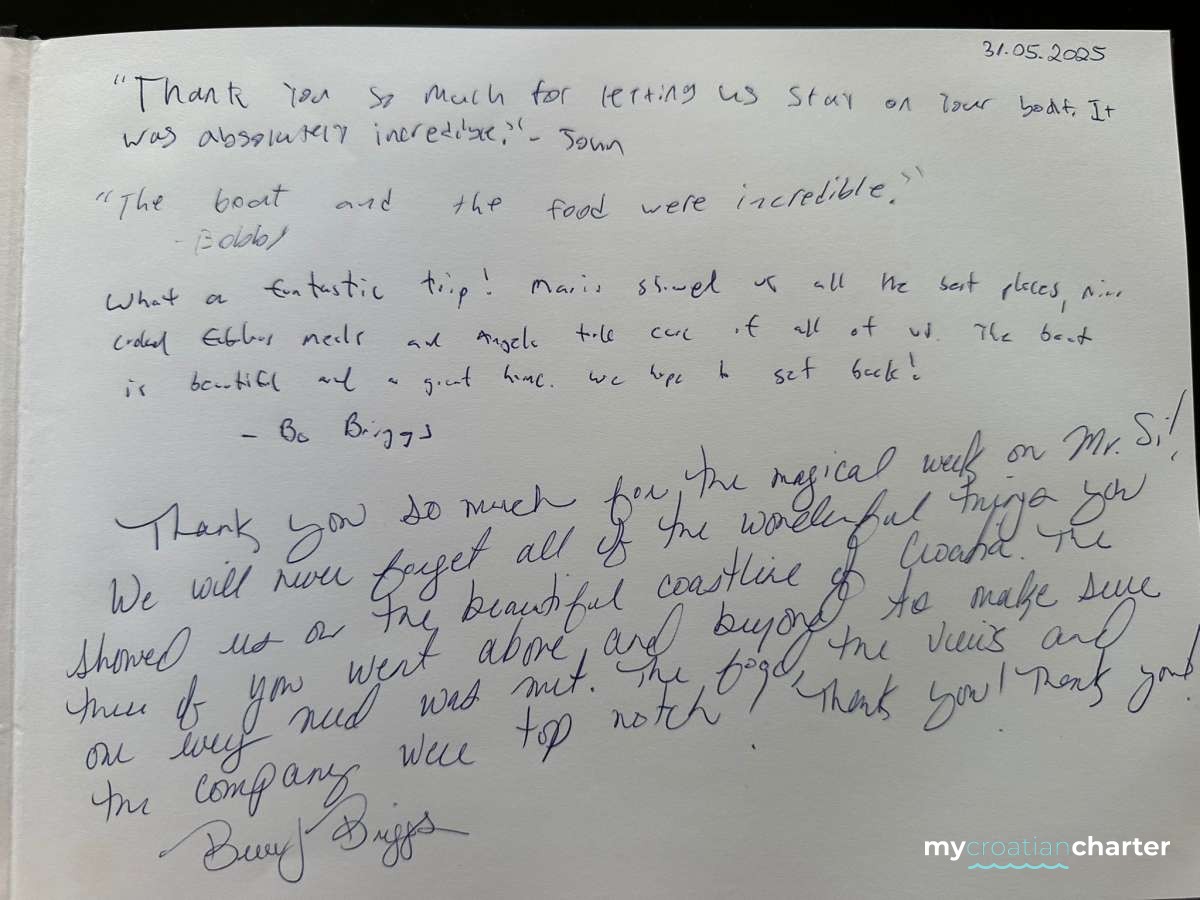 31.05.2025
"Thank you so much for letting us stay on your boat. It
was absolutely incredible." - John
"The boat and the food were incredible."
- Bobby
What a fantastic trip! Mario showed us all the best places,
cooked fabulous meals and Angela took care of all of us. The boat
is beautiful and a great home. We hope to get back!
- Bo Briggs
Thank you so much for the magical week on Mr. Si!
We will never forget all of the wonderful things you
showed us on the beautiful coastline of Croatia. The
three of you went above and beyond to make sure
our every need was met. The food, the views and
the company were top notch! Thank you! Thank you!
Briggs
mycroatiancharter